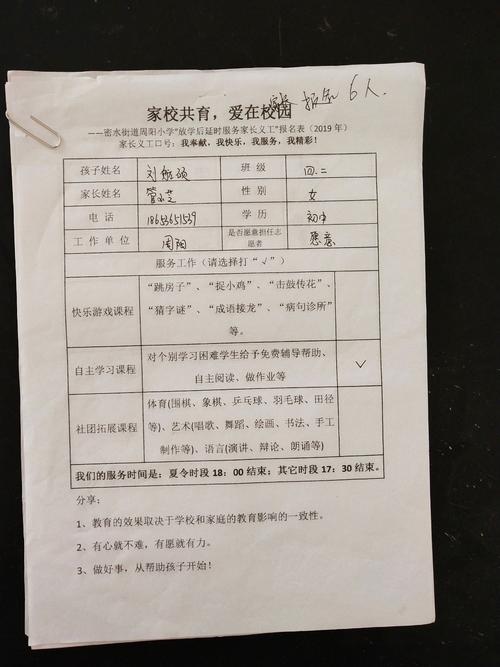 报名 6人.
家校共育，爱在校园
——密水街道周阳小学“放学后延时服务家长义工”报名表（2019 年）
家长义工口号：我奉献，我快乐，我服务，我精彩！
孩子姓名 刘 硕 班 级 四.二
家长姓名 管 芝 性 别 女
电 话 18653651539 学 历 初中
工 作 单 位 周阳 是否愿意担任志愿者 愿意
服务工作（请选择打“√”）
快乐游戏课程
“跳房子”、“捉小鸡”、“击鼓传花”、
“猜字谜”、“成语接龙”、“病句诊所”
等。
自主学习课程
对个别学习困难学生给予免费辅导帮助、
自主阅读、做作业等
√
社团拓展课程
体育(围棋、象棋、乒乓球、羽毛球、田径
等)、艺术(唱歌、舞蹈、绘画、书法、手工
制作等)、语言(演讲、辩论、朗诵等)
我们的服务时间是：夏令时段 18：00 结束；其它时段 17：30 结束。
分享：
1、教育的效果取决于学校和家庭的教育影响的一致性。
2、有心就不难，有愿就有力。
3、做好事，从帮助孩子开始！